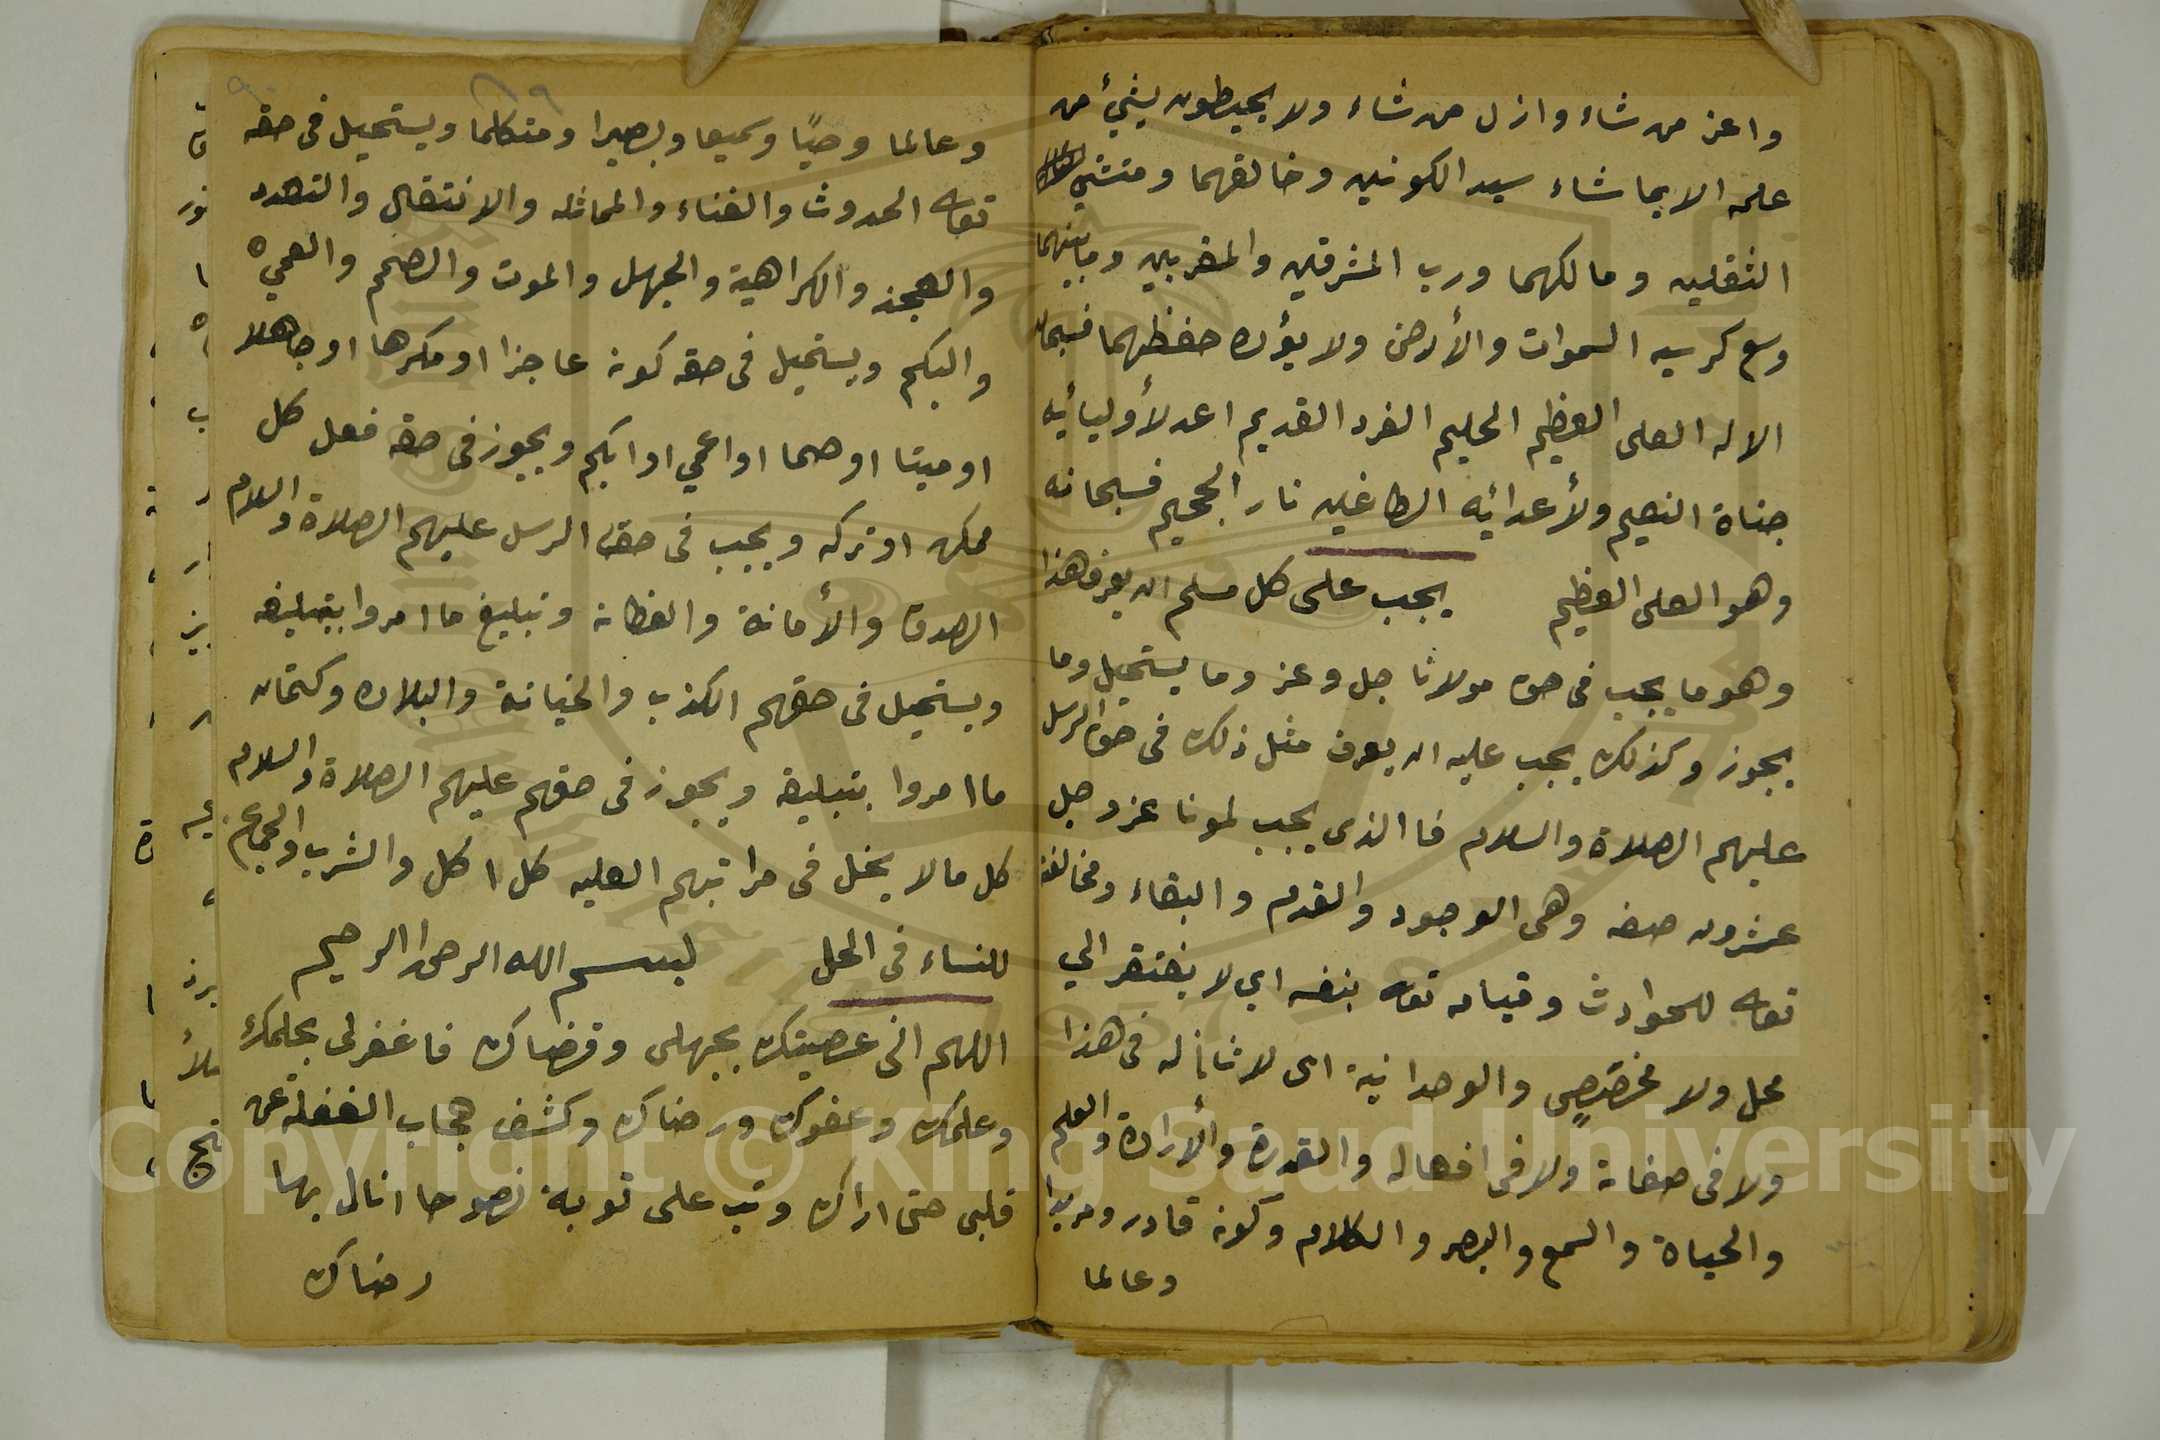 واعز من شاء وازل من شاء ولا يحيطون بشيء من
علمه الا بما شاء سيد الكونين وخالقهما ومنشئ
الثقلين ومالكهما ورب المشرقين والمغربين وما بينهما
وسع كرسيه السموات والأرض ولا يؤده حفظهما فسبحان
الاله العلى العظيم الحليم الفرد القديم اعد لأوليائيه
جناة النعيم ولأعدائيه الطاغين نار الجحيم فسبحانه
وهو العلى العظيم يجب على كل مسلم ان يعرف هذا
وهو ما يجب فى حق مولانا جل وعز وما يستحيل وما
يجوز وكذلك يجب عليه ان يعرف مثل ذلك فى حق الرسل
عليهم الصلاة والسلام فا الذى يجب لمونا عز وجل
عشرون صفه وهى الوجود والقدم والبقاء ومخالفته
تعاله للحوادث وقيامه تعاله بنفسه اي لا يفتقر الي
محل ولا مخصّصٍ والوحدانية اى لا ثانٍ له فى هذا
ولا فى صفاته ولا فى افعاله والقدرة والأرادة والعلم
والحياة والسمع والبصر والكلام وكونه قادر ومريدا
وعالما
٨٩
٩٠
وعالما وحيًا وسميعا وبصيرا ومتكلما ويستحيل فى حقه
تعاله الحدوث والفناء والمماثله والانتقال والتعدد
والعجز والكراهية والجهل والموت والصمم والعمي
والبكم ويستحيل فى حقه كونه عاجزا او مكرها او جاهلا
او ميتا او صما او اعمي او ابكم ويجوز فى حقه فعل كل
ممكن او تركه ويجب فى حق الرسل عليهم الصلاة والسلام
الصدق والأمانة والفطانة وتبليغ ما امروا بتبليغه
ويستحيل فى حقهم الكذب والخيانة والبلاده وكتمان
ما امروا بتبليغه ويجوز فى حقهم عليهم الصلاة والسلام
كل ما لا يخل فى مراتبهم العليه كل اكل والشرب والجماع
للنساء فى الحل بسم الله الرحمن الرحيم
اللهم انى عصيتك بجهلى وقضاك فاغفرلى بحلمك
وعلمك وعفوك ورضاك وكشف حجاب الغفلة عن
قلبى حتى اراك وتب على توبة نصوحا انال بها
رضاك
Copyright © King Saud University